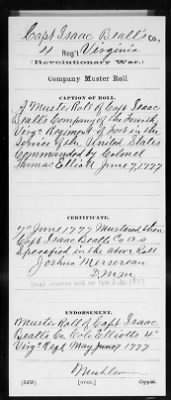 Capt Isaac Beall's Co.,
4 Reg't Virginia
(Revolutionary War.)
Company Muster Roll
CAPTION OF ROLL.
A Muster Roll of Capt Isaac
Bealls Company of the Fourth
Virga Regiment of Foot in the
Service of the United States
Commanded by Colonel
Thomas Elliott June 7, 1777
CERTIFICATE.
7th June 1777 Mustered then
Capt Isaac Bealls Co as
Specified in the above Roll
Joshua Mersereau
D.M.M.
ENDORSEMENT.
Muster Roll of Capt Isaac
Bealls Co Colo Elliotts 4th
Virga Regt May June 1777
(OVER.) Copyist.